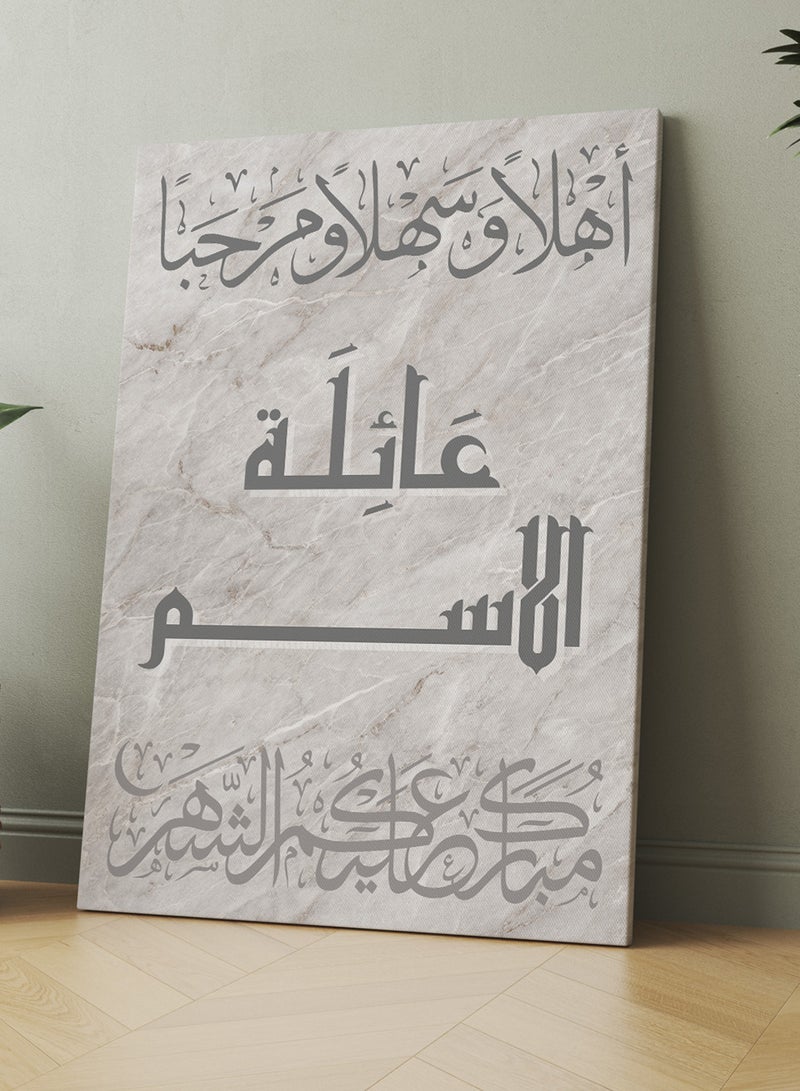 أهلاً وَسَهلاً ومَرحَباً
عَائِلَة
الاسم
مُبارك عليكُم الشّهر